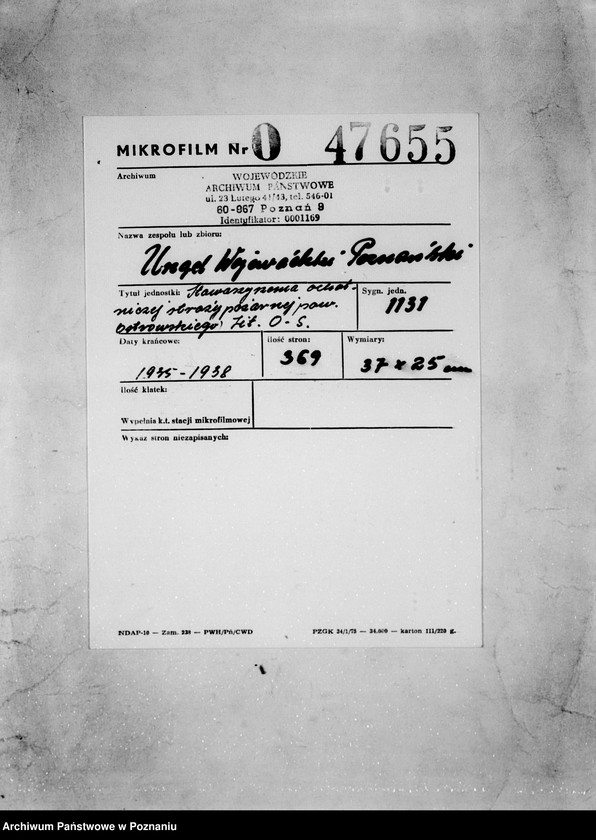 MIKROFILM Nr 0 47655
Archiwum
WOJEWÓDZKIE
ARCHIWUM PAŃSTWOWE
ul. 23 Lutego 41/43, tel. 546-01
60-967 Poznań 9
Identyfikator: 0001169
Nazwa zespołu lub zbioru:
Urząd Wojewódzki Poznański
Tytuł jednostki: Stowarzyszenia ochot-
niczej straży pożarnej pow.
Ostrowskiego lit. O-S.
Sygn. jedn.
1131
Daty krańcowe:
1935-1938
ilość stron:
369
Wymiary:
37 x 25 cm
ilość klatek:
Wypełnia k.t. stacji mikrofilmowej
Wykaz stron niezapisanych:
NDAP-10 — Zam. 238 — PWH/Pń/CWD
PZGK 24/1/75 — 34.000 — karton III/220 g.
Archiwum Państwowe w Poznaniu